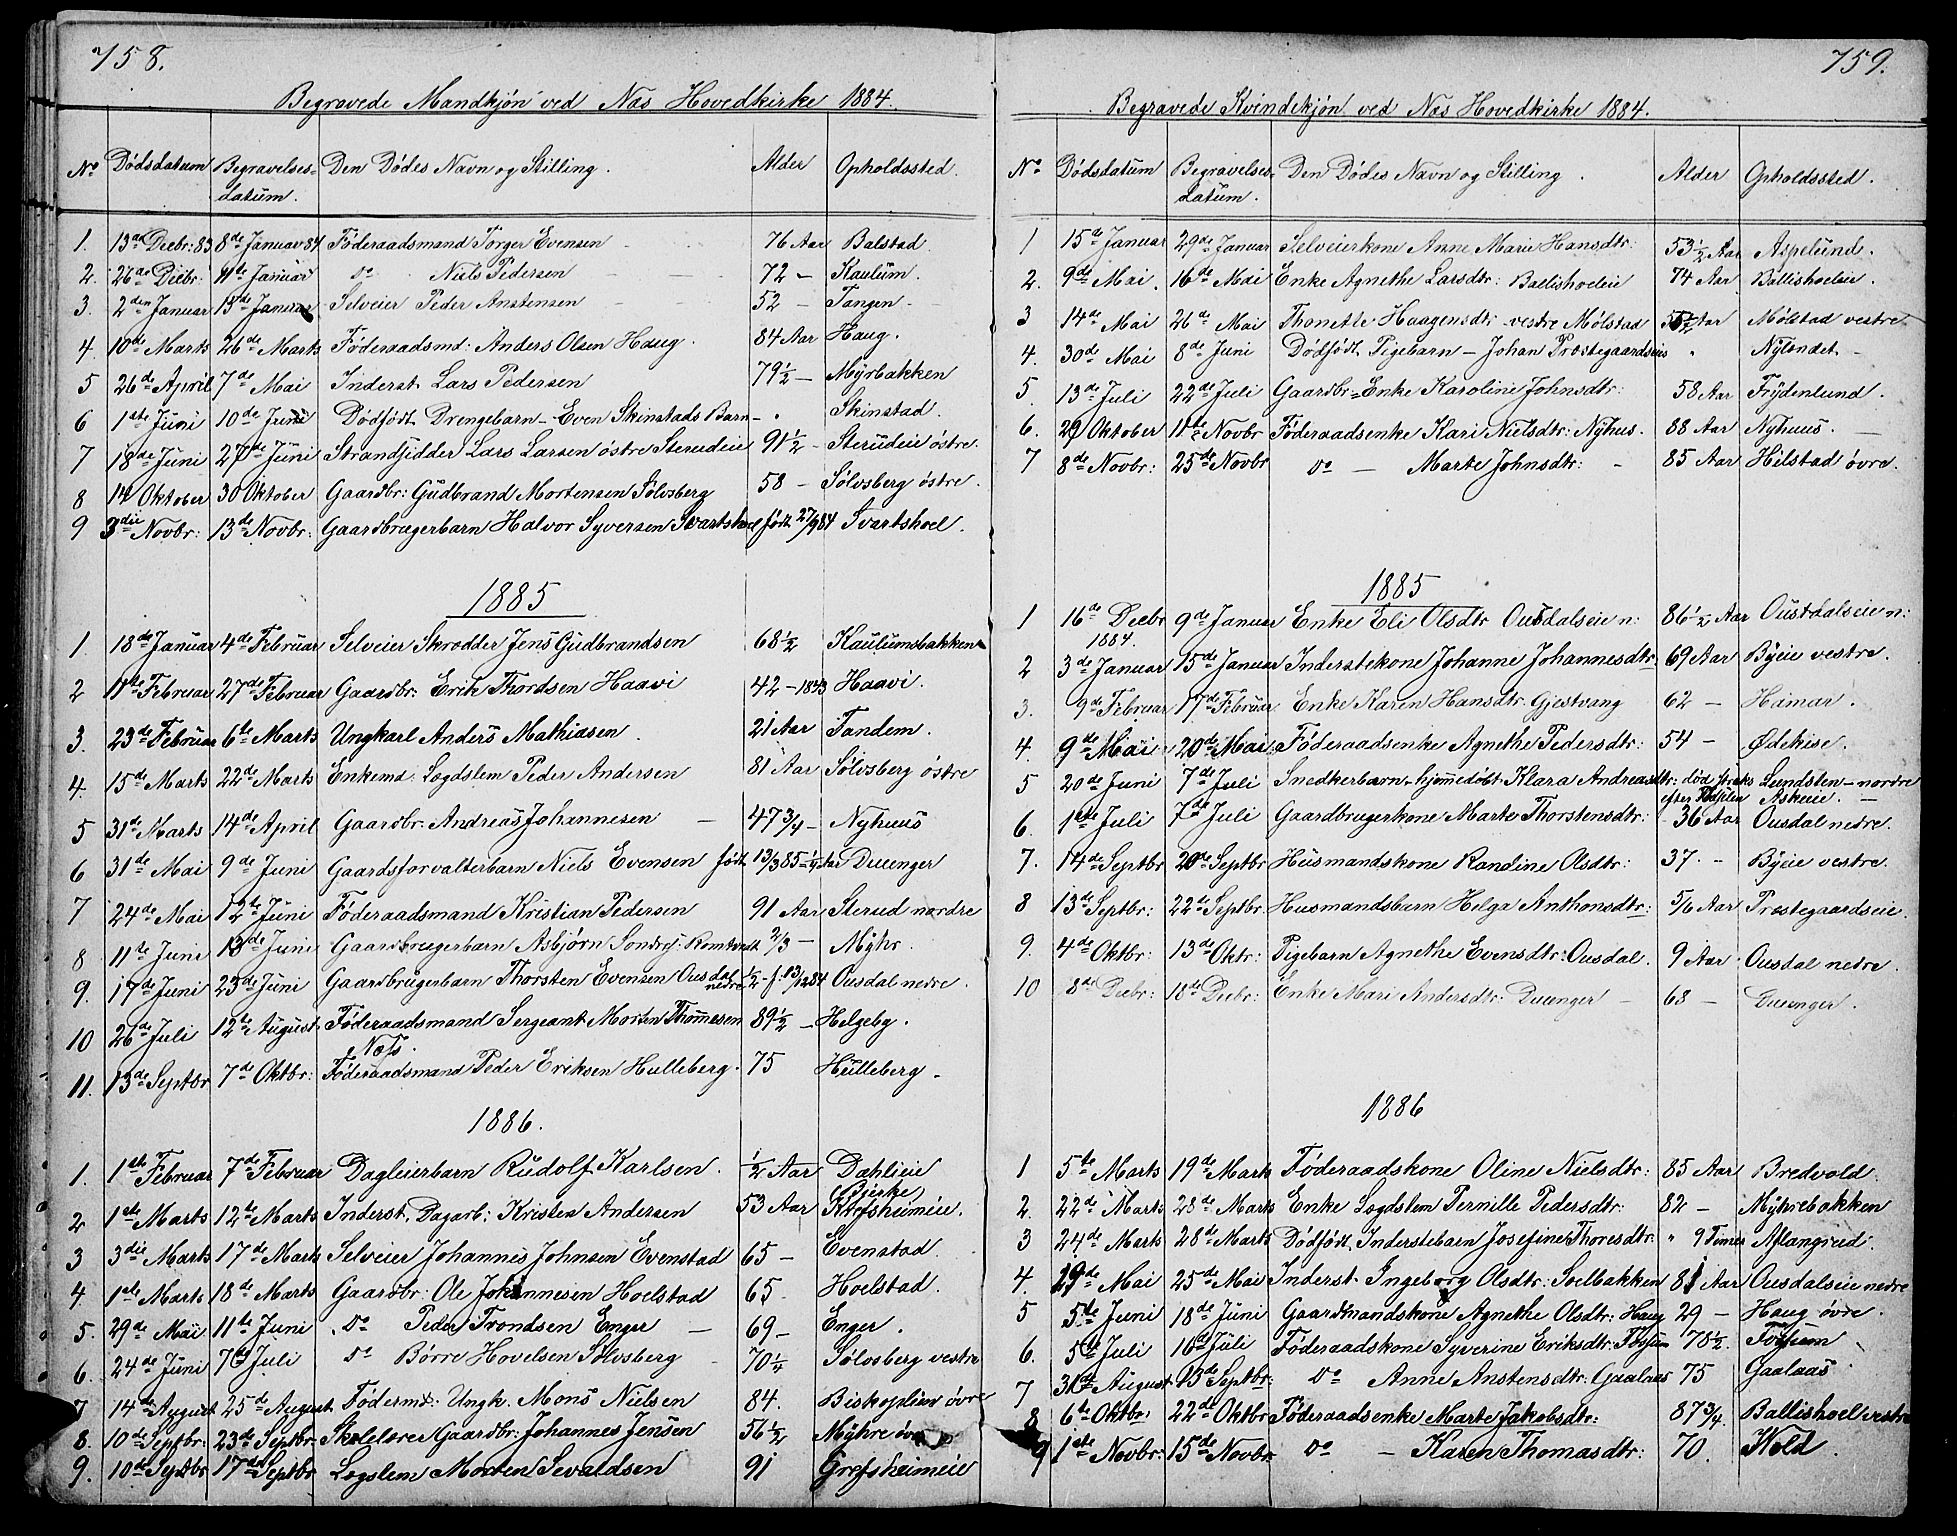 758.
Begravede Mandkjøn ved Næs Hovedkirke 1884.
No Dødsdatum Begravelses= datum. Den Dødes Navn og Stilling. Alder Opholdssted.
1. 13de Decbr: 83 8de Januar 84 Føderaadsmand Torger Evensen 76 Aar Balstad
2. 26de Decbr: 11te Januar do Niels Pedersen 72 - Kaulum.
3. 2den Januar 15de Januar Selveier Peder Anstensen 52 - Tangen -
4. 10de Marts 26de Marts Føderaadsmd: Anders Olsen Haug. 84 Aar Haug.
5 26de April 7de Mai Inderst Lars Pedersen 79½ - Myrbakken
6 1ste Juni 10de Juni Dødfødt Drengebarn - Even Skinstads Barn - Skinstad.
7 18de Juni 27de Juni Strandsidder Lars Larsen østre Sterudeie 91½ - Sterudeie østre.
8 14 Oktober 30 Oktober Gaardbr: Gudbrand Mortensen Sølvsberg 58 - Sølvsberg østre.
9 3die Novbr: 13de Novbr: Gaardbrugerbarn Halvor Syversen Svartshoel født 27/9 84 Svartshoel.
1885
1. 18de Januar 4de Februar Selveier Skrædder Jens Gudbrandsen 68½ Kaulumsbakken
2 11te Februar 27de Februar Gaardbr: Erik Thordsen Haavi 42 - 1843 Haavi.
3. 23de Februar 6te Marts Ungkarl Anders Mathiasen. 21 Aar Tandem.
4. 15de Marts 22de Marts Enkemd Logdslem Peder Andersen 81 Aar Sølvsberg østre
5 31de Marts 14de April Gaardbr: Andreas Johannesen - 47¾ - Nyhuus
6 31de Mai 9de Juni Gaardsforvalterbarn Niels Evensen født 13/3 85 = ¼ Aar Duenger
7 24de Mai 12te Juni Føderaadsmand Kristian Pedersen 91 Aar Sterud nordre
8 11te Juni 18de Juni Gaardbrugerbarn Asbjørn Sondrej: Romtveit 2/3 - Myhr.
9. 17de Juni 23de Juni Gaardbrugerbarn Thorsten Evensen Ousdal nedre ½ - f: 13/12 84 Ousdal nedre.
10 26de Juli 12te August Føderaadsmand Sergeant Morten Thommesen Næs. 89½ - Helgeby.
11. 13de Septbr 7de Oktbr: Føderaadsmand Peder Eriksen Hulleberg. 75 Hulleberg -
1886.
1. 1ste Februar 7de Februar Dagleierbarn Rudolf Karlsen. ½ Aar Dæhlieie
2 1ste Marts 12te Marts Inderst, Dagarb: Kristen Andersen 53 Aar Bjerke, Grefsheimeie.
3 3die Marts 17de Marts Selveier Johannes Johnsen Evenstad 65 - Evenstad
4. 1ste Marts 18de Marts Gaardbr: Ole Johannesen Hoelstad 65. Hoelstad.
5. 29de Mai 11te Juni do Peder Trondsen Enger - 69 - Enger.
6. 24de Juni 7de Juli do Børre Hovelsen Sølvsberg - 70¼ Sølvsberg vestre
7 14de August 25de August Fødermd: Ungk. Mons Nielsen 84. Biskoplien øvre
8. 10de Septbr: 23de Septbr: Skolelærer Gaardbr: Johannes Jensen 56½ Myhre
9. 10de Septbr 17de Septbr Logslem Morten Sevaldsen 91 Grefsheimeie
759.
Begravede Kvindekjøn ved Næs Hovedkirke 1884.
No Dødsdatum Begravelses- datum. Den Dødes Navn og Stilling. Alder Opholdssted.
1 15de Januar 29de Januar Selveierkone Anne Marie Hansdtr: 53½ Aar Aspelund.
2. 9de Mai. 16de Mai Enke Agnethe Larsdtr: Ballishoeleie 74 Aar Ballishoeleie.
3 14de Mai 26de Mai Thonette Haagensdtr: vestre Mølstad Aar Mølstad vestre
4. 30de Mai 8de Juni Dødfødt Pigebarn - Johan Præstegaardseies " Nylændet -
5. 13de Juli 22de Juli Gaardbr=Enke Karoline Johnsdtr: 58 Aar Frydenlund.
6. 29 Oktober 11te Novbr Føderaadsenke Kari Nielsdtr: Nyhus. 88 Aar Nyhuus. -
7 8de Novbr: 25de Novbr do - Marte Johnsdtr: - 85 Aar Hilstad øvre.
1885
1 16de Decbr 1884. 9de Januar Enke Eli Olsdtr Ousdalseie n: 86½ Aar Oustdalseie n:
2 3de Januar 15de Januar Inderstekone Johanne Johannesdtr: 69 Aar Byeie vestre.
3. 9de Februar 17de Februar Enke Karen Hansdtr: Gjestvang 62 - Hamar.
4. 9de Mai 20de Mai Føderaadsenke Agnethe Pedersdtr: 54 - Ødekise.
5 20de Juni 7de Juli Snedkerbarn-hjemmedøbt Klara Andreasdtr: død straks efter Fødslen Lundsten - nordre Askeie. -
6. 1ste Juli 7de Juli Gaardbrugerkone Marte Thorstensdtr: 36 Aar Ousdal nedre.
7. 14de Septbr 20de Septbr Husmandskone Randine Olsdtr: 37. - Byeie vestre.
8 13de Septbr: 22de Septbr Husmandsbarn Helga Anthonsdtr: 5/6 Aar Præstegaardseie.
9. 4de Oktbr: 13de Oktr: Pigebarn Agnethe Evensdtr: Ousdal. 9 Aar Ousdal nedre.
10 8de Decbr: 18de Decbr: Enke Mari Andersdtr: Duenger - 68 - Duenger.
1886
1 5te Marts 19de Marts Føderaadskone Oline Nielsdtr: 85 Aar Bredvold.
2. 22de Marts 28de Marts Enke Logdslem Pernille Pedersdtr: 82 - Myhrebakken
3 24de Marts 28de Marts Dødfødt, Inderstebarn Josefine Thoresdtr: " 9 Timer Aflangrud.
4. 29de Mai 25de Mai Inderst- Ingeborg Olsdtr: Soelbakken 81 Aar Ousdalseie nedre
5 5te Juni 18de Juni Gaardmandskone Agnethe Olsdtr: Haug 29 - Haug øvre.
6. 5te Juli 16de Juli Føderaadskone Syverine Eriksdtr: Fossum 78½. Fossum
7 31te August 13de Septbr: do Anne Anstensdtr: Gaalaas 75 Gaalaas
8 6te Oktbr: 22de Oktbr Føderaadsenke Marte Jakobsdtr: 87¾. Ballishoel vestre
9 1ste Novbr: 15de Novbr do - Karen Thomasdtr: 70. Kold.